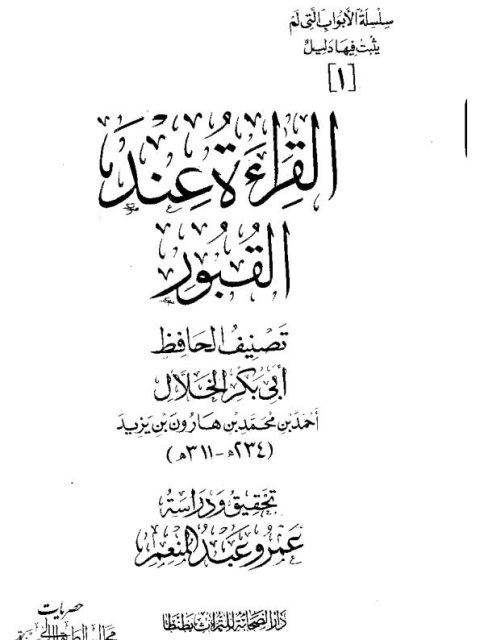 سِلْسِلَةُ الأَبْوَابِ التِّي لَمْ
يَثْبُتْ فِيهَا دَلِيلٌ
[١]
القِرَاءَةُ عِنْدَ
القُبُورِ
تَصْنِيفُ الحَافِظِ
أَبِي بَكْرٍ الخَلَّالِ
أَحْمَدَ بْنِ مُحَمَّدِ بْنِ هَارُونَ بْنِ يَزِيدَ
(٢٣٤هـ - ٣١١هـ)
تَحْقِيقُ وَدِرَاسَةُ
عَمْرُو عَبْدُ المُنْعِم
دَارُ الصَّحَابَةِ لِلتُّرَاثِ بِطَنْطَا
حصريات